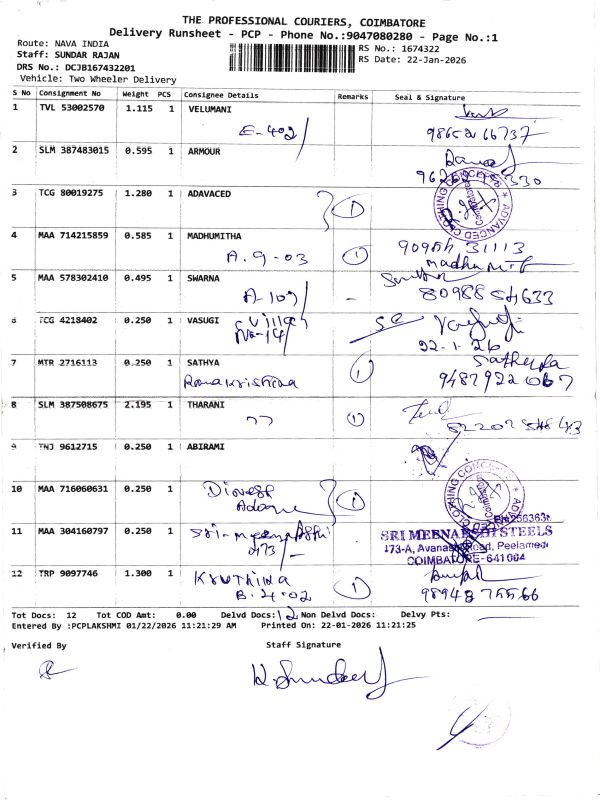 THE PROFESSIONAL COURIERS, COIMBATORE
Delivery Runsheet - PCP - Phone No.:9047080280 - Page No.:1
Route: NAVA INDIA
RS No.: 1674322
Staff: SUNDAR RAJAN
RS Date: 22-Jan-2026
DRS No.: DCJB167432201
Vehicle: Two Wheeler Delivery
S No Consignment No Weight PCS Consignee Details Remarks Seal & Signature
1 TVL 53002570 1.115 1 VELUMANI
E-402/
2 SLM 387483015 0.595 1 ARMOUR
3 TCG 80019275 1.280 1 ADAVACED 1
ADVANCED CLOTHING CONCEPTS
Coimbatore
4 MAA 714215859 0.585 1 MADHUMITHA
A.9-03 1 90954 31113
5 MAA 578302410 0.495 1 SWARNA
A-107/ - 80988 54633
6 TCG 4218402 0.250 1 VASUGI
No-14/ 22.1.26
7 MTR 2716113 0.250 1 SATHYA
Ramakrishna 1 9487922067
8 SLM 387508675 2.195 1 THARANI
77 1
9 TNJ 9612715 0.250 1 ABIRAMI
10 MAA 716060631 0.250 1 Dinesh
1
11 MAA 304160797 0.250 1 Sri-Meenakshi
173/-
SRI MEENAKSHI STEELS
173-A, Avanashi Road, Peelamedu
COIMBATORE-641004
12 TRP 9097746 1.300 1 Kruthika
B.4-02 1 98948 75566
Tot Docs: 12 Tot COD Amt: 0.00 Delvd Docs: 12 Non Delvd Docs: Delvy Pts:
Entered By :PCPLAKSHMI 01/22/2026 11:21:29 AM Printed On: 22-01-2026 11:21:25
Verified By Staff Signature